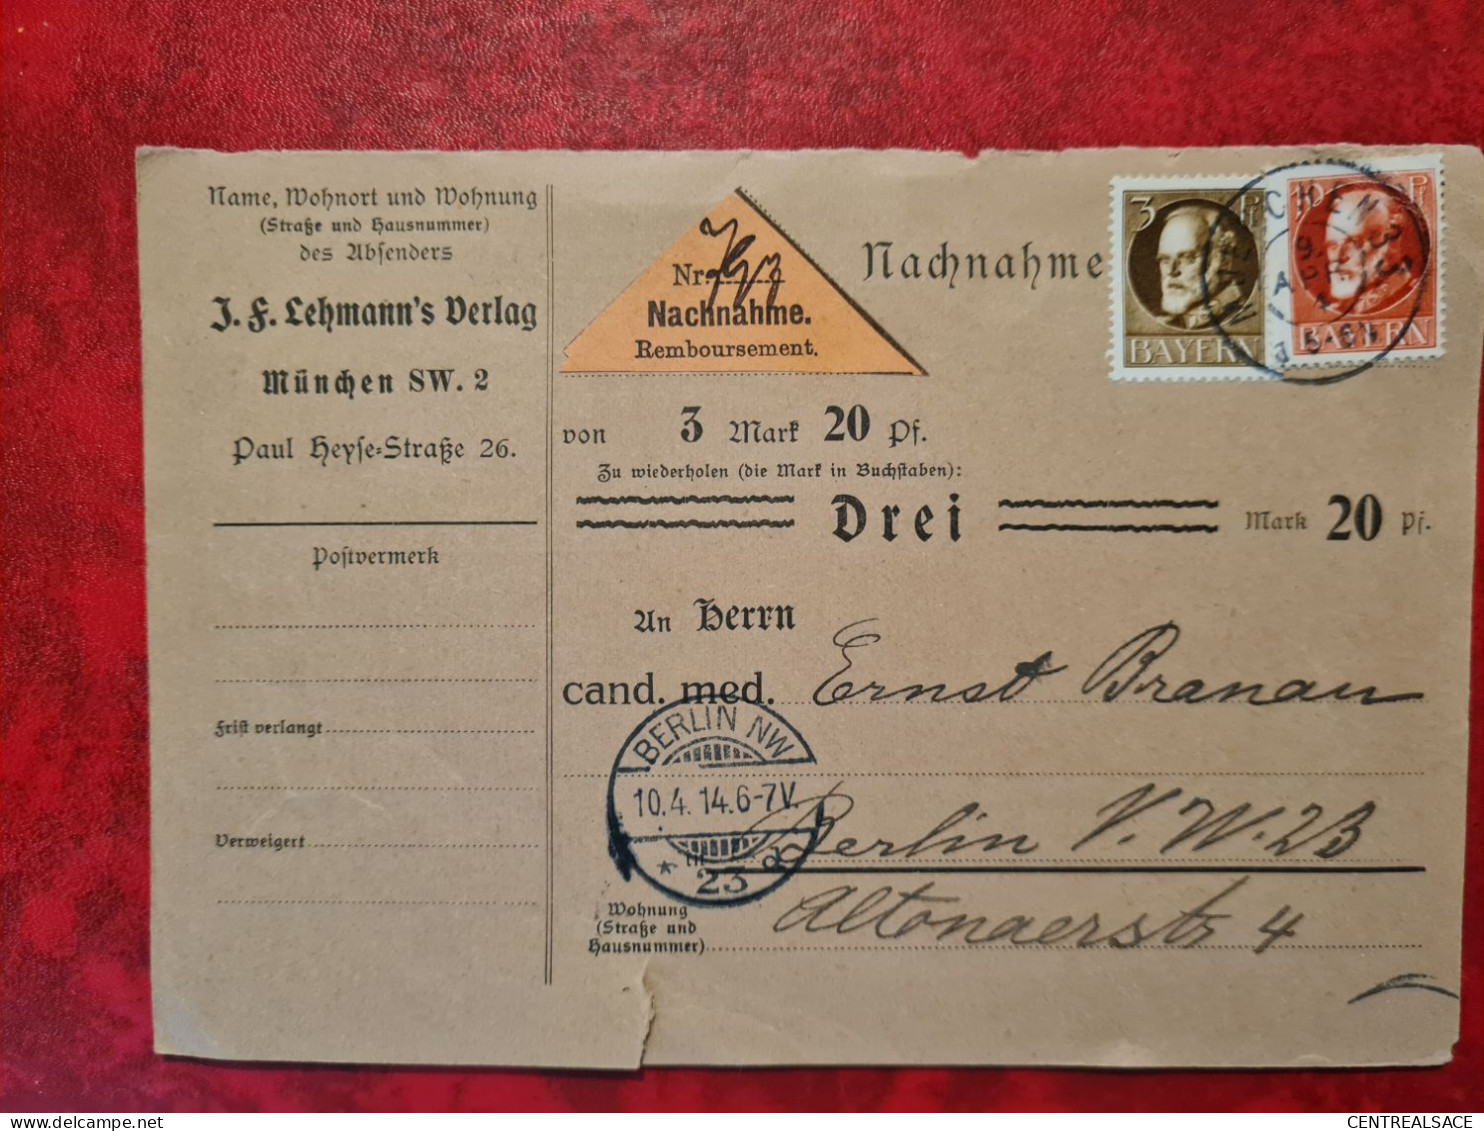 Name, Wohnort und Wohnung
(Straße und Hausnummer)
des Absenders
J. F. Lehmann's Verlag
München SW. 2
Paul Heyse-Straße 26.
Postvermerk
Frist verlangt
Verweigert
Nr.
Nachnahme.
Remboursement.
Nachnahme
3 PF
BAYERN
10 PF
BAYERN
MÜNCHEN
9 APR
5-6N
von 3 Mark 20 Pf.
Zu wiederholen (die Mark in Buchstaben):
Drei Mark 20 Pf.
An Herrn
cand. med. Ernst Branau
BERLIN NW
10.4.14.6-7V.
* 23
Berlin N.W. 23
Wohnung
(Straße und
Hausnummer)
Altonaerstr 4
CENTREALSACE